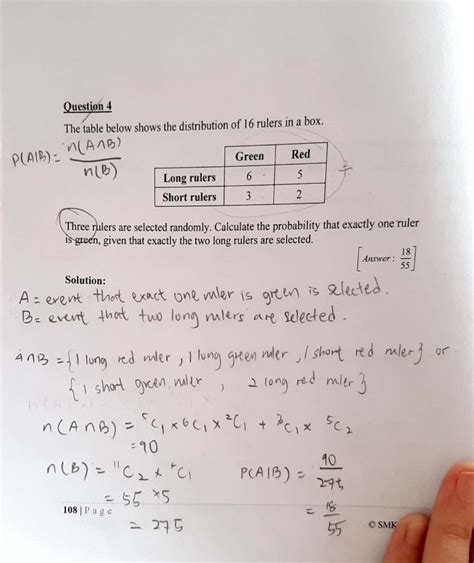 Question 4
The table below shows the distribution of 16 rulers in a box.
P(A|B) = n(A∩B) / n(B)
Green Red
Long rulers 6 5
Short rulers 3 2
Three rulers are selected randomly. Calculate the probability that exactly one ruler
is green, given that exactly the two long rulers are selected.
[Answer : 18/55]
Solution:
A = event that exact one ruler is green is selected.
B = event that two long rulers are selected.
A∩B = {1 long red ruler, 1 long green ruler, 1 short red ruler} or
{1 short green ruler, 2 long red ruler}
n(A∩B) = ⁵C₁ x ⁶C₁ x ²C₁ + ³C₁ x ⁵C₂
= 90
n(B) = ¹¹C₂ x C₁ P(A|B) = 90/275
= 55 x5 = 18/55
108 | Page
= 275 © SMK